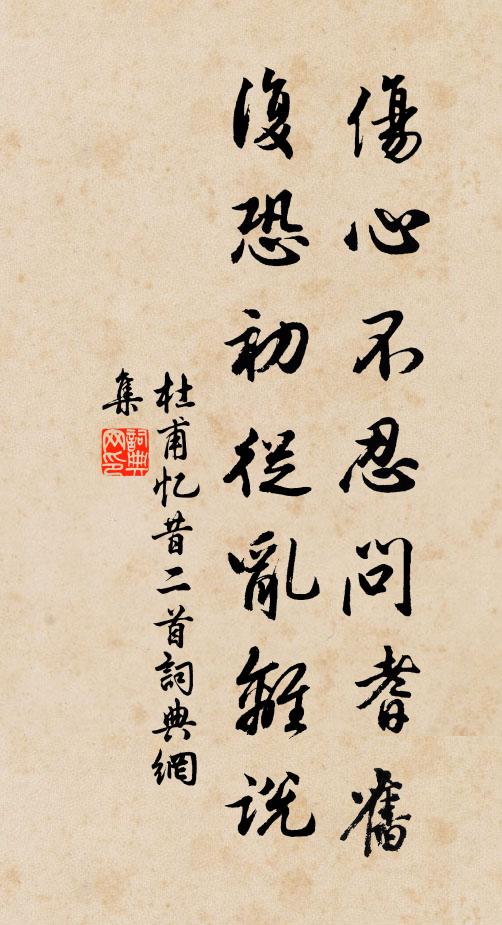 傷心不忍問耆舊
復恐初從亂離說
杜甫忆昔二首詞典網
集
詞典
网印